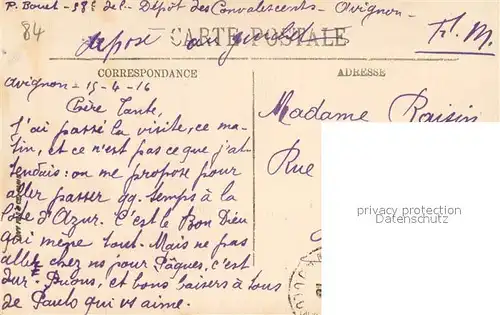 P. Bouet - 58e de L. - Dépôt des Convalescents - Avignon -
84
CARTE POSTALE
F. M.
CORRESPONDANCE
ADRESSE
Avignon - 15-4-16
Chère Tante,
J'ai passé la visite, ce ma-
tin, et ce n'est pas ce que j'at-
tendais : on me propose pour
aller passer qq. temps à la
Côte d'Azur. C'est le Bon Dieu
qui mène tout. Mais ne pas
aller chez ns pour Pâques, c'est
dur. Prions, et bons baisers à tous
de Paulo qui vs aime.
Madame Raisin
Rue
privacy protection
Datenschutz